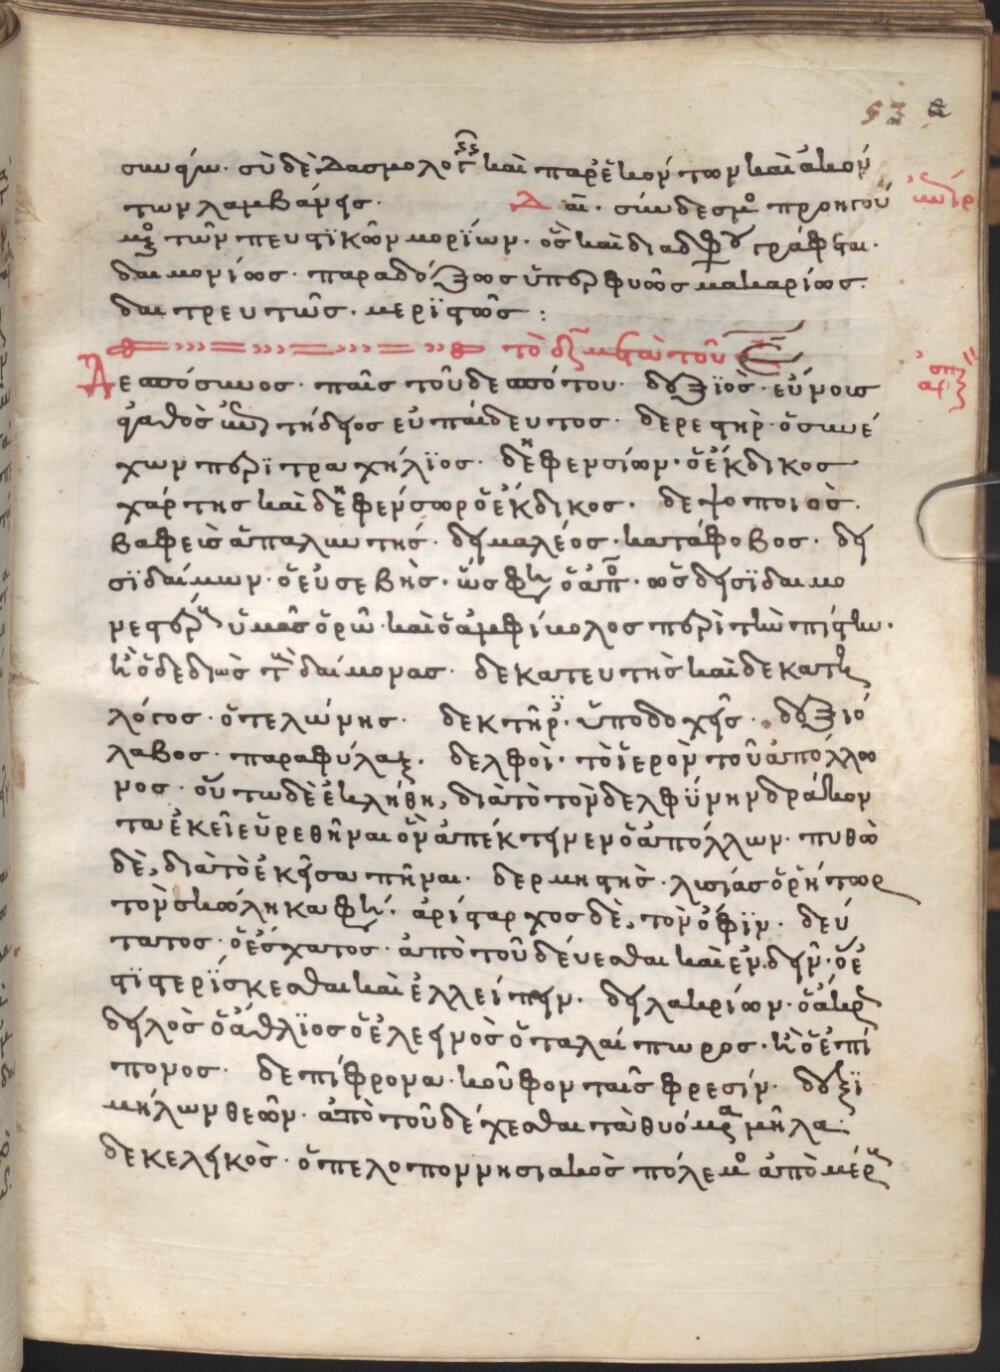 53
συνάγω. σὺ δὲ δασμολογεῖς καὶ παρ' ἑκόντων καὶ ἀκόν
των λαμβάνεις. Δαί. σύνδεσμος προηγού
μενος τῶν πευστικῶν μορίων. ὃς καὶ διὰ διφθόγγου γράφεται.
δαιμονίως. παραδόξως ὑπερφυῶς μακαρίως.
δαιτρευτῶς. μεριστῶς :
τὸ δ μετὰ τοῦ ε
Δεσπόσυνος. παῖς τοῦ δεσπότου. δεξιός. εὔνους
ἀγαθὸς ἐπιτήδειος εὐπαίδευτος. δερεστήρ. ὁ συνέ
χων περιτραχήλιος. δηφενσίων. ὁ ἔκδικος
χάρτης καὶ δηφένσωρ ὁ ἔκδικος. δεψοποιός.
βαφεὺς ἁπαλυντής. δειμαλέος. κατάφοβος. δει
σιδαίμων. ὁ εὐσεβής. ὥς φησιν ὁ ἀπόστολος. ὡς δεισιδαιμο
νεστέρους ὑμᾶς ὁρῶ. καὶ ὁ ἀμφίβολος περὶ τὴν πίστιν.
καὶ ὁ δεδιὼς τοὺς δαίμονας. δεκατευτὴς καὶ δεκατη
λόγος. ὁ τελώνης. δεκτήρ. ὑποδοχεύς. δεξιό
λαβος. παραφύλαξ. δελφοί. τὸ ἱερὸν τοῦ ἀπόλλω
νος. οὕτω δὲ ἐκλήθη, διὰ τὸ τὸν δελφύνην δράκον
τα ἐκεῖ εὑρεθῆναι ὃν ἀπέκτεινεν ὁ ἀπόλλων. πυθὼ
δὲ, διὰ τὸ ἐκεῖ σαπῆναι. δερμηστής. λυσίας ὁ ῥήτωρ
τὸν σκώληκα φησί. ἀρίσταρχος δὲ, τὸν ὄφιν. δεύ
τατος. ὁ ἔσχατος. ἀπὸ τοῦ δεύεσθαι καὶ ἐνδεῖν. ὅ ἐ
στι στερίσκεσθαι καὶ ἐλλείπειν. δειλακρίων. ὁ ἄκρως
δειλὸς ὁ ἄθλιος ὁ ἐλεεινὸς ὁ ταλαίπωρος. καὶ ὁ ἐπί
πονος. δεπίφρονα. κοῦφον ταῖς φρεσίν. δεξι
μήλων θεῶν. ἀπὸ τοῦ δέχεσθαι τὰ θυόμενα μῆλα.
δεκελεικός. ὁ πελοποννησιακὸς πόλεμος ἀπὸ μέρους